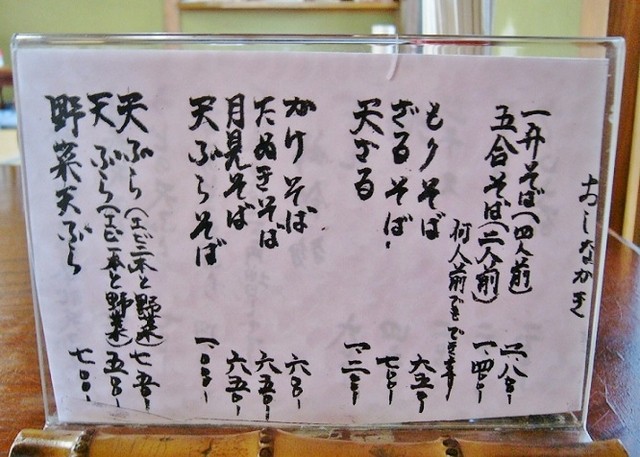 おしながき
一升そば(四人前) 二、八〇〇
五合そば(二人前) 一、四〇〇
何人前でもできます
もりそば 六五〇
ざるそば 七〇〇
天ざる 一、二〇〇
かけそば 六〇〇
たぬきそば 六五〇
月見そば 六五〇
天ぷらそば 一、一〇〇
天ぷら(エビ二本と野菜) 七五〇
天ぷら(エビ一本と野菜) 五〇〇
野菜天ぷら 七〇〇